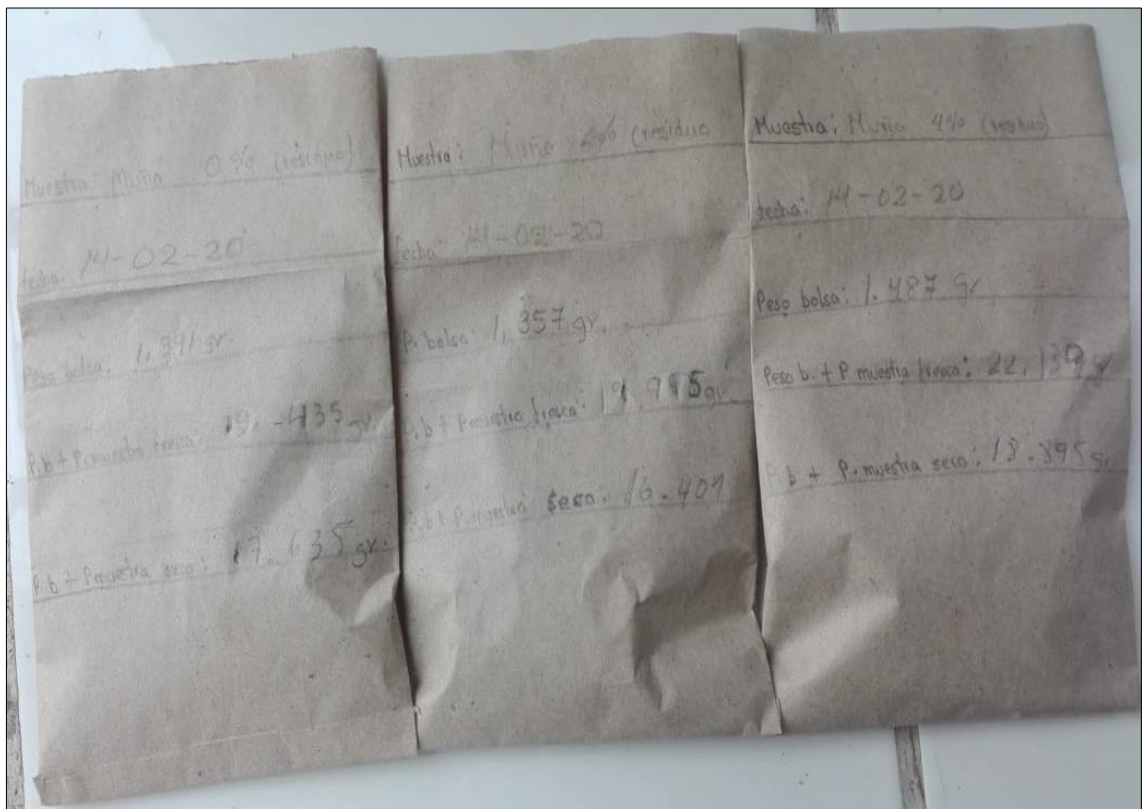 Muestra: Muña 0% (residuo)
fecha: 14-02-20
Peso bolsa: 1,391 gr.
P.b + P.muestra fresca: 19.435 gr.
P.b + P.muestra seca: 17.635 gr.
Muestra: Muña (residuo
fecha: 14-02-20
P. bolsa: 1,357 gr.
P.b + P.muestra fresca: gr.
P.b + P.muestra seco: 16.407
Muestra: Muña 4% (residuo)
fecha: 14-02-20
Peso bolsa: 1.487 gr
Peso b. + P muestra fresca: 22,139 gr
P.b + P. muestra seca: 18.895 gr